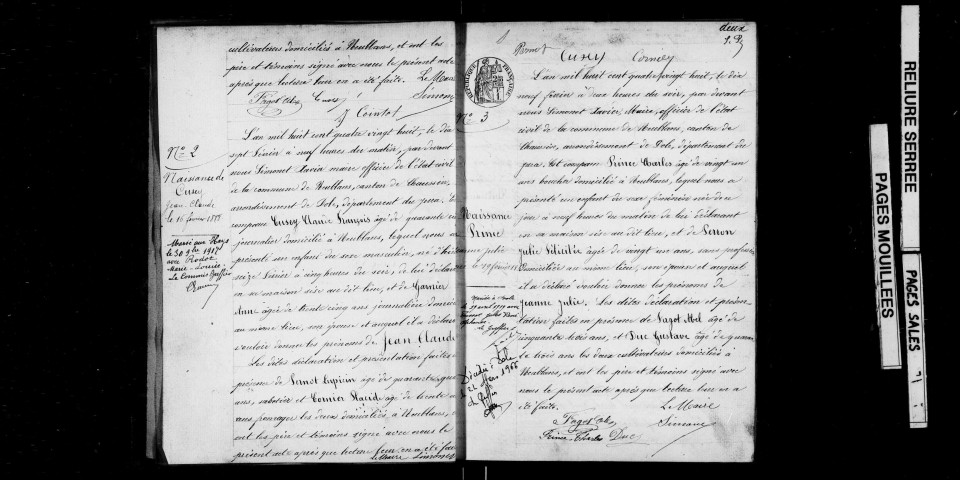 cultivateurs domiciliés à Neublans, et ont les
père et témoins signé avec nous le présent acte
après que lecture leur en a été faite. Le Maire
Fagot Abel Cusey Simonet
Cointot
N° 2
Naissance de
Cusey
Jean Claude
le 16 février 1888
Marié aux Hays
le 30 9bre 1912
avec Rodot
Marie-Louise
Le Commis Greffier
L'an mil huit cent quatre vingt huit, le dix
sept Février à neuf heures du matin, par devant
nous Simonet Xavier maire officier de l'état civil
de la commune de Neublans, canton de Chaussin,
arrondissement de Dole, département du Jura. Est
comparu Cusey Claude François âgé de quarante
journalier domicilié à Neublans, lequel nous a
présenté un enfant du sexe masculin, né hier
seize Février à cinq heures du soir, de lui déclarant
en sa maison sise au dit lieu, et de Garnier
Anne âgée de trente cinq ans journalière domiciliée
au même lieu, son épouse et auquel il a déclaré
vouloir donner les prénoms de Jean Claude
Les dites déclaration et présentation faites en
présence de Cyprien âgé de quarante
ans, sabotier et Cornier Placide âgé de trente
ans les deux domiciliés à Neublans,
ont les père et témoins signé avec nous le
présent acte après que lecture leur en a été faite
Le Maire Simonet
deux
Permet
Cusey Cornier
RÉPUBLIQUE FRANÇAISE
N° 3
Naissance
Prince
Jeanne Julie
le 19 février 1888
Décédée à Dole
le 22 Mars 1966
Le Greffier
L'an mil huit cent quatre vingt huit, le dix
neuf février à deux heures du soir, par devant
nous Simonet Xavier, Maire, officier de l'état
civil de la commune de Neublans, canton de
Chaussin, arrondissement de Dole, département du
Jura. Est comparu Prince Charles âgé de vingt un
ans domicilié à Neublans, lequel nous a
présenté un enfant du sexe féminin née ce
jour à neuf heures du matin de lui déclarant
en sa maison sise au dit lieu, et de Perron
Julie âgée de vingt un ans, sans profession
domiciliée au même lieu, son épouse et auquel
il a déclaré vouloir donner les prénoms de
Jeanne Julie. Les dites déclaration et présen
tation faites en présence de Fagot Abel âgé de
cinquante trois ans, et Duc Gustave âgé de quaran
te trois ans les deux cultivateurs domiciliés à
Neublans, et ont les père et témoins signé avec
nous le présent acte après que lecture leur en a
été faite. Le Maire
Fagot Abel Simonet
Prince Charles Duc
RELIURE SERREE
PAGES MOUILLEES
PAGES SALES